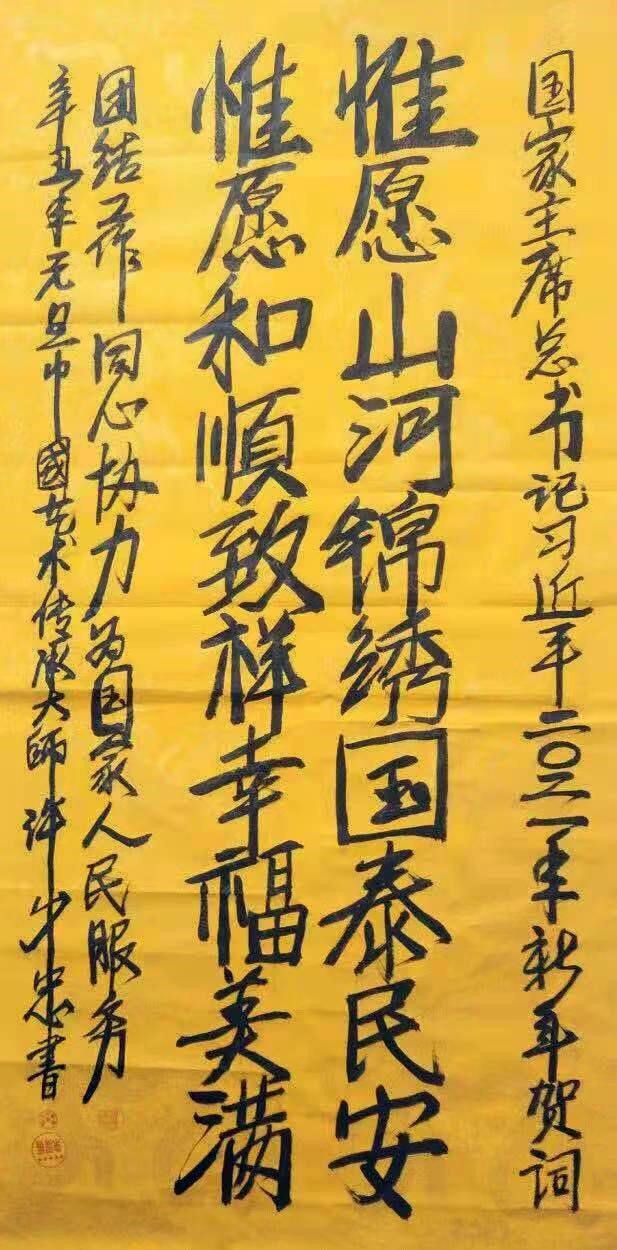 国家主席总书记习近平二〇二一年新年贺词
惟愿山河锦绣国泰民安
惟愿和順致祥幸福美满
团结工作同心协力为国家人民服务
辛丑年元旦中國艺术传承大師许中忠書